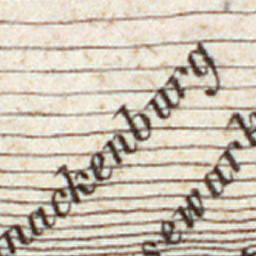 nackenburg
sewark